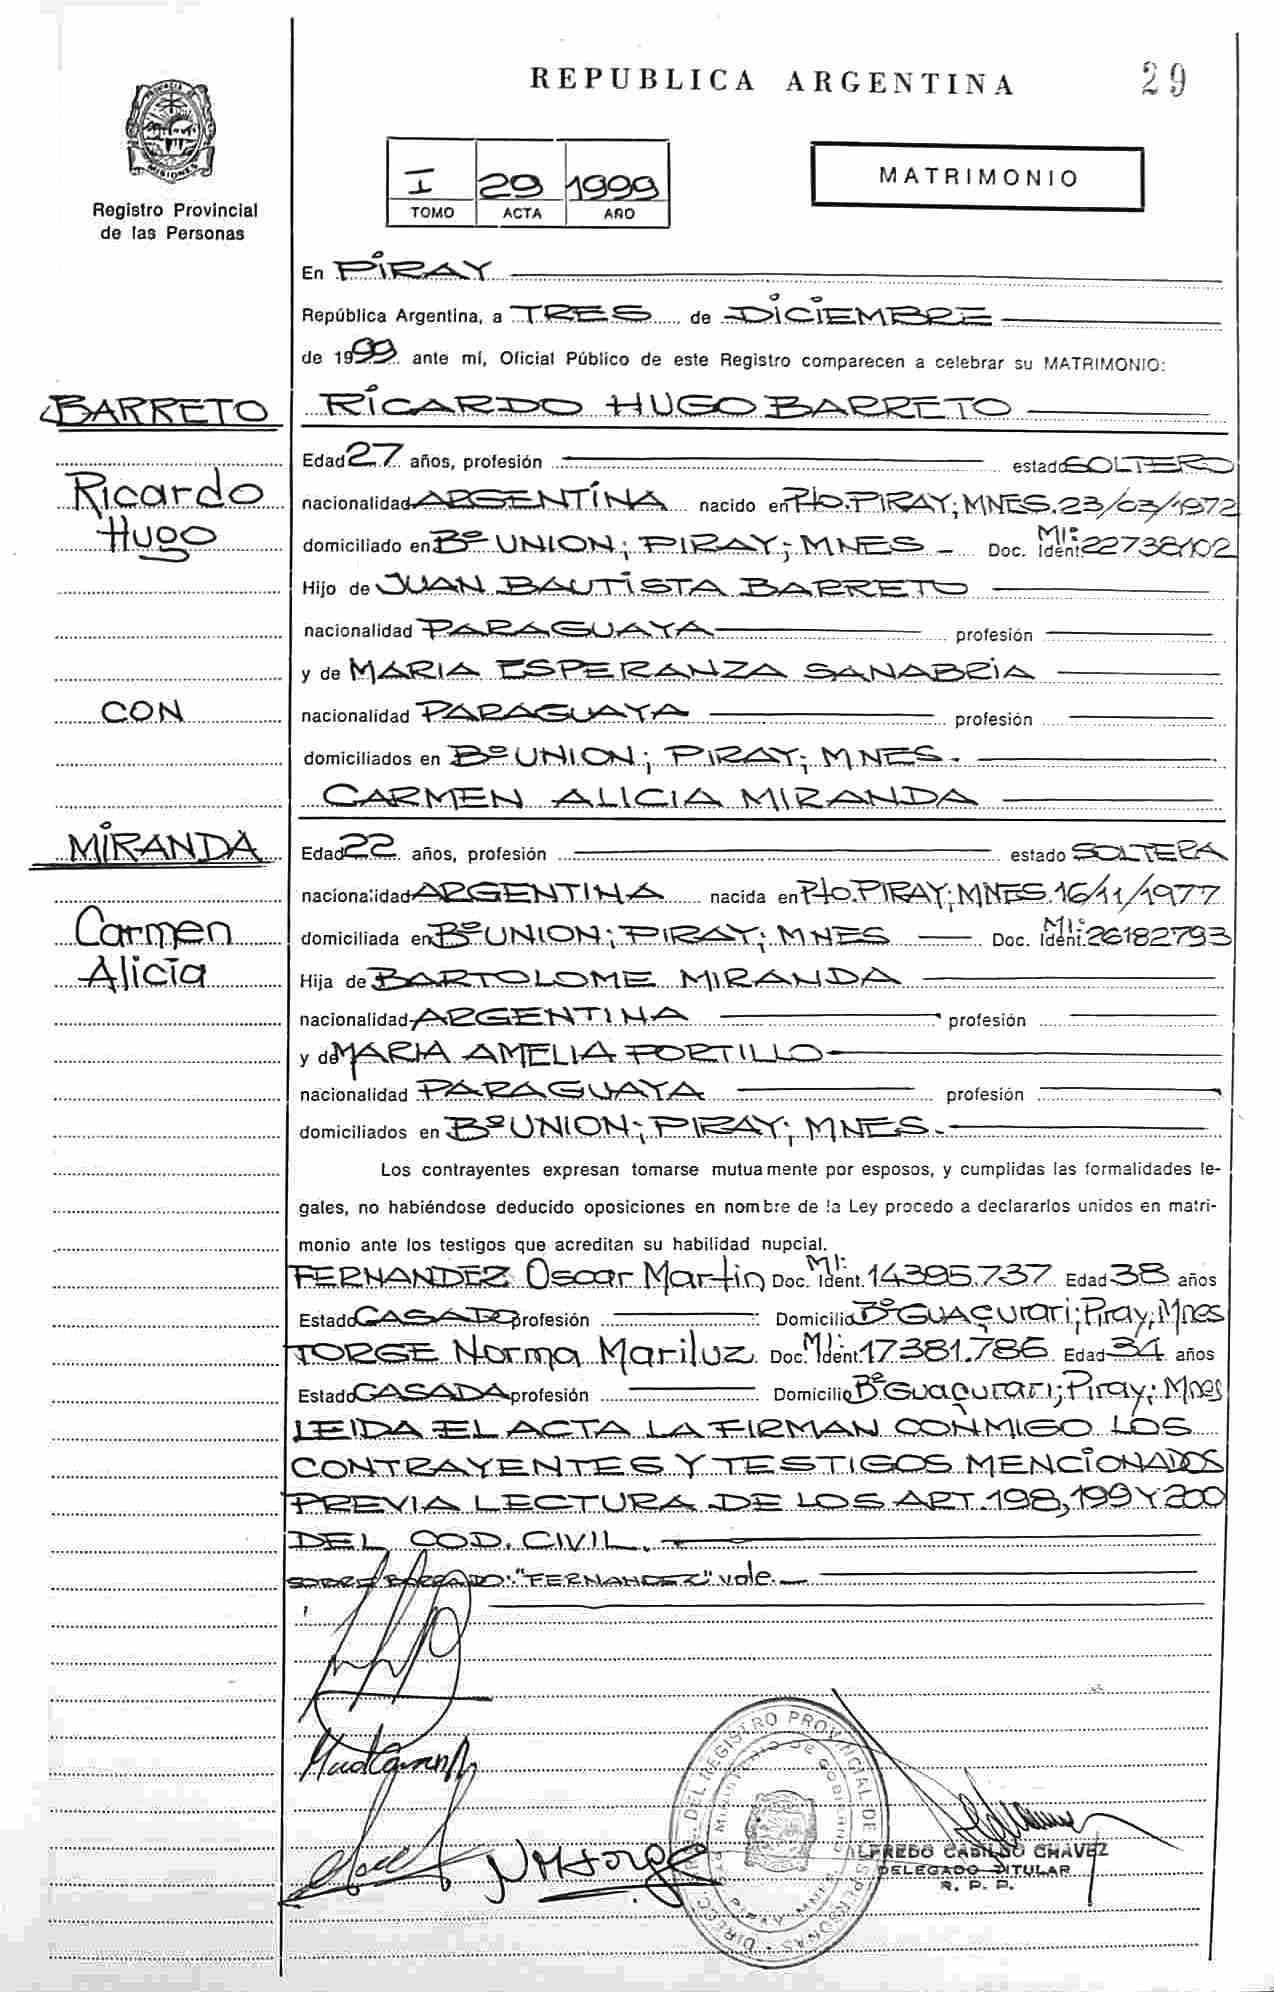 REPUBLICA ARGENTINA
29
PROVINCIA DE
MISIONES
Registro Provincial
de las Personas
I 29 1999
TOMO ACTA AÑO
MATRIMONIO
En PIRAY
República Argentina, a TRES de DICIEMBRE
de 1999 ante mí, Oficial Público de este Registro comparecen a celebrar su MATRIMONIO:
BARRETO
RICARDO HUGO BARRETO
Edad 27 años, profesión estado SOLTERO
Ricardo
nacionalidad ARGENTINA nacido en Pto. PIRAY; MNES. 23/03/1972
Hugo
domiciliado en Bº UNION; PIRAY; MNES - Doc. Ident. MI: 22738102
Hijo de JUAN BAUTISTA BARRETO
nacionalidad PARAGUAYA profesión
y de MARIA ESPERANZA SANABRIA
CON
nacionalidad PARAGUAYA profesión
domiciliados en Bº UNION; PIRAY; MNES.
CARMEN ALICIA MIRANDA
MIRANDA
Edad 22 años, profesión estado SOLTERA
nacionalidad ARGENTINA nacida en Pto. PIRAY; MNES. 16/11/1977
Carmen
domiciliada en Bº UNION; PIRAY; MNES Doc. Ident. MI: 26182793
Alicia
Hija de BARTOLOME MIRANDA
nacionalidad ARGENTINA profesión
y de MARIA AMELIA PORTILLO
nacionalidad PARAGUAYA profesión
domiciliados en Bº UNION; PIRAY; MNES.
Los contrayentes expresan tomarse mutuamente por esposos, y cumplidas las formalidades le-
gales, no habiéndose deducido oposiciones en nombre de la Ley procedo a declararlos unidos en matri-
monio ante los testigos que acreditan su habilidad nupcial.
FERNANDEZ Oscar Martin Doc. Ident. MI: 14.395.737 Edad 38 años
Estado CASADO profesión Domicilio Bº GUAÇurari; Piray, Mnes
TORGE Norma Mariluz Doc. Ident. MI: 17381.786 Edad 34 años
Estado CASADA profesión Domicilio Bº Guaçurari; Piray; Mnes
LEIDA EL ACTA LA FIRMAN CONMIGO LOS
CONTRAYENTES Y TESTIGOS MENCIONADOS
PREVIA LECTURA DE LOS ART. 198, 199 Y 200
DEL COD. CIVIL.
SOBRE BARRADO: "FERNANDEZ" vale.
DIRECC. PROV. DEL REGISTRO PROVINCIAL DE LAS PERSONAS
MINISTERIO DE GOBIERNO
ALFREDO CASILDO CHAVEZ
DELEGADO TITULAR
R. P. P.